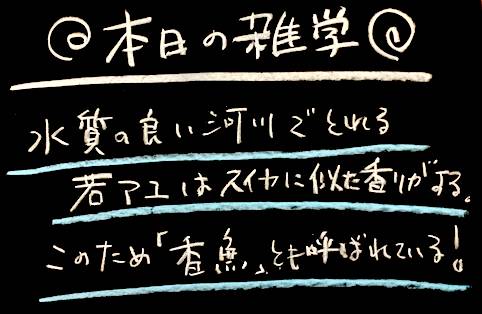 @本日の雑学@
水質の良い河川でとれる
若アユはスイカに似た香りがする。
このため「香魚」とも呼ばれている!